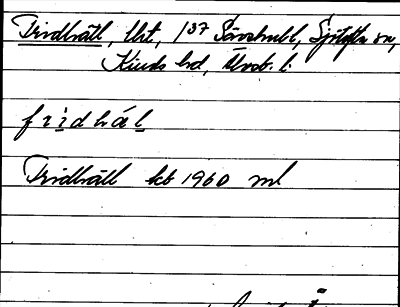 Fridhäll, lht, 1/37 Särshult, Sjötofta sn,
Kinds hd, Älvsb. l.
fridhäl
Fridhäll kb 1960 ml